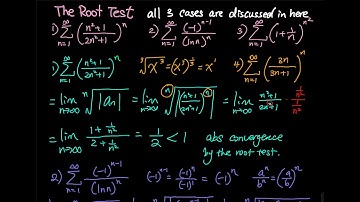 The Root Test all 3 cases are discussed in here
1) ∞ Σ n=1 ((n²+1)/(2n²+1))ⁿ 2) ∞ Σ n=1 (-1)ⁿ⁻¹/(ln n)ⁿ 3) ∞ Σ n=1 (1+1/n)^(n²)
1) ∞ Σ n=1 ((n²+1)/(2n²+1))ⁿ ³√x³ = (x³)^(1/3) = x¹ 4) ∞ Σ n=1 (3n/(3n+1))ⁿ
= lim n→∞ ⁿ√|aₙ| = lim n→∞ ⁿ√|((n²+1)/(2n²+1))ⁿ| = lim n→∞ (n²+1)/(2n²+1) · (1/n²)/(1/n²)
= lim n→∞ (1+1/n²)/(2+1/n²) = 1/2 < 1 abs convergence
by the root test.
2) ∞ Σ n=1 (-1)ⁿ⁻¹/(ln n)ⁿ (-1)ⁿ⁻¹ = (-1)ⁿ/(-1)¹ = (-1)ⁿ aⁿ/bⁿ = (a/b)ⁿ